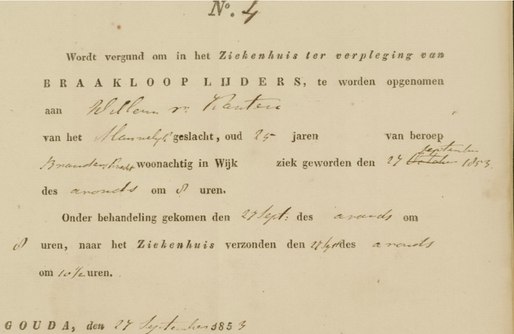 No. 4
Wordt vergund om in het Ziekenhuis ter verpleging van
BRAAKLOOPLIJDERS, te worden opgenomen
aan Willem v. Kanten
van het Mannelijk geslacht, oud 25 jaren van beroep
september
Branders woonachtig in Wijk ziek geworden den 27 October 1853
des avonds om 8 uren.
Onder behandeling gekomen den 27 Sept: des avonds om
8 uren, naar het Ziekenhuis verzonden den 27 des avonds
om 10½ uren.
GOUDA, den 27 September 1853